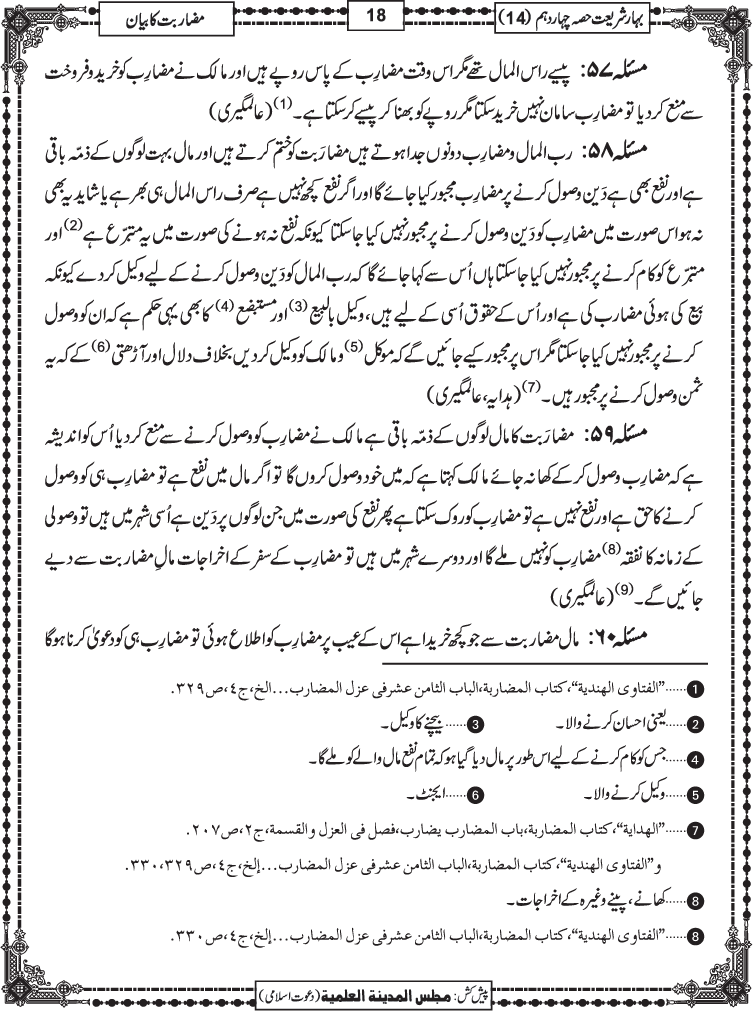 بہارِ شریعت حصہ چہاردہم (14)
18
مضاربت کا بیان
مسئلہ ۵۷: پیسے راس المال تھے مگر اس وقت مضارِب کے پاس روپے ہیں اور مالک نے مضارِب کو خرید و فروخت
سے منع کر دیا تو مضارِب سامان نہیں خرید سکتا مگر روپے کو بھنا کر پیسے کر سکتا ہے۔(1) (عالمگیری)
مسئلہ ۵۸: رب المال و مضارِب دونوں جدا ہوتے ہیں مضارَبت کو ختم کرتے ہیں اور مال بہت لوگوں کے ذمّہ باقی
ہے اور نفع بھی ہے دَین وصول کرنے پر مضارِب مجبور کیا جائے گا اور اگر نفع کچھ نہیں ہے صرف راس المال ہی بھر ہے یا شاید یہ بھی
نہ ہو اس صورت میں مضارِب کو دَین وصول کرنے پر مجبور نہیں کیا جاسکتا کیونکہ نفع نہ ہونے کی صورت میں یہ متبرّع ہے(2) اور
متبرّع کو کام کرنے پر مجبور نہیں کیا جاسکتا ہاں اُس سے کہا جائے گا کہ رب المال کو دَین وصول کرنے کے لیے وکیل کر دے کیونکہ
بیع کی ہوئی مضارب کی ہے اور اُس کے حقوق اُسی کے لیے ہیں، وکیل بالبیع(3) اور مستبضع(4) کا بھی یہی حکم ہے کہ ان کو وصول
کرنے پر مجبور نہیں کیا جاسکتا مگر اس پر مجبور کیے جائیں گے کہ موکل(5) و مالک کو وکیل کر دیں بخلاف دلال اور آڑھتی(6) کے کہ یہ
ثمن وصول کرنے پر مجبور ہیں۔(7) (ہدایہ، عالمگیری)
مسئلہ ۵۹: مضارَبت کا مال لوگوں کے ذمّہ باقی ہے مالک نے مضارِب کو وصول کرنے سے منع کر دیا اُس کو اندیشہ
ہے کہ مضارِب وصول کر کے کھا نہ جائے مالک کہتا ہے کہ میں خود وصول کروں گا تو اگر مال میں نفع ہے تو مضارِب ہی کو وصول
کرنے کا حق ہے اور نفع نہیں ہے تو مضارِب کو روک سکتا ہے پھر نفع کی صورت میں جن لوگوں پر دَین ہے اُسی شہر میں ہیں تو وصولی
کے زمانہ کا نفقہ(8) مضارِب کو نہیں ملے گا اور دوسرے شہر میں ہیں تو مضارِب کے سفر کے اخراجات مالِ مضاربت سے دیے
جائیں گے۔(9) (عالمگیری)
مسئلہ ۶۰: مال مضاربت سے جو کچھ خریدا ہے اس کے عیب پر مضارِب کو اطلاع ہوئی تو مضارِب ہی کو دعویٰ کرنا ہوگا
1 ......"الفتاوی الھندیة"، کتاب المضاربة، الباب الثامن عشر فی عزل المضارب...الخ، ج٤، ص٣٢٩.
2 ......یعنی احسان کرنے والا۔ 3 ......بیچنے کا وکیل۔
4 ......جس کو کام کرنے کے لیے اس طور پر مال دیا گیا ہو کہ تمام نفع مال والے کو ملے گا۔
5 ......وکیل کرنے والا۔ 6 ......ایجنٹ۔
7 ......"الھدایة"، کتاب المضاربة، باب المضارب یضارب، فصل فی العزل والقسمة، ج٢، ص٢٠٧.
و"الفتاوی الھندیة"، کتاب المضاربة، الباب الثامن عشر فی عزل المضارب...إلخ، ج٤، ص٣٢٩، ٣٣٠.
8 ......کھانے، پینے وغیرہ کے اخراجات۔
8 ......"الفتاوی الھندیة"، کتاب المضاربة، الباب الثامن عشر فی عزل المضارب...إلخ، ج٤، ص٣٣٠.
پیش کش: مجلس المدینة العلمیة (دعوت اسلامی)